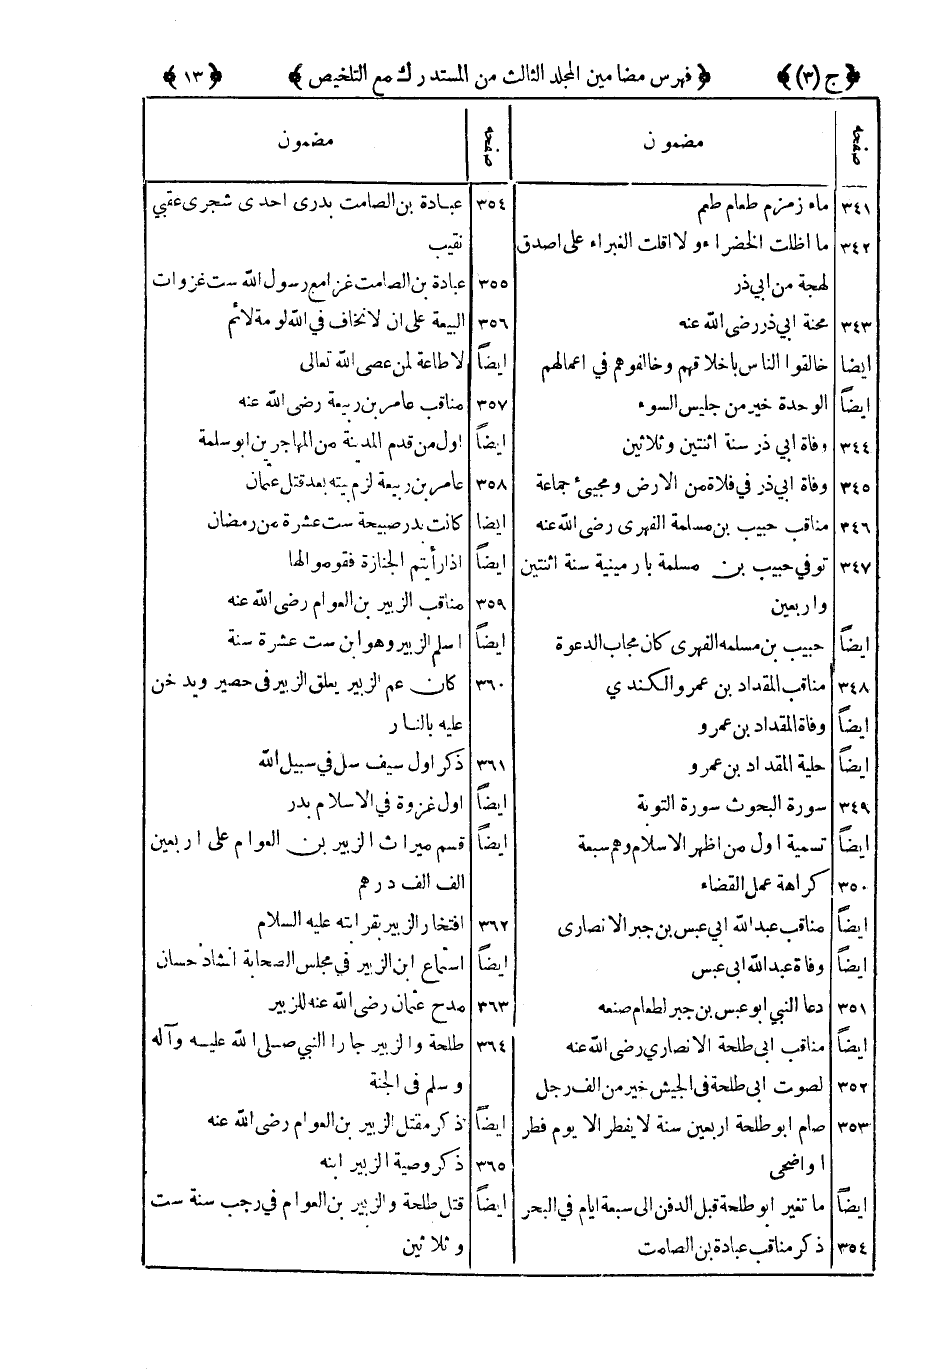 ﴿ ج (٣) ﴾ ﴿ فهرس مضامين المجلد الثالث من المستدرك مع التلخيص ﴾ ﴿ ١٣ ﴾
صفحه مضمون
٣٤١ ماء زمزم طعام طعم
٣٤٢ ما اظلت الخضراء ولا اقلت الغبراء على اصدق
لهجة من ابي ذر
٣٤٣ محنة ابي ذر رضى الله عنه
ايضا خالقوا الناس باخلاقهم وخالفوهم في اعمالهم
ايضاً الوحدة خير من جليس السوء
٣٤٤ وفاة ابي ذر سنة اثنتين وثلاثين
٣٤٥ وفاة ابي ذر في فلاة من الارض ومجيئ جماعة
٣٤٦ مناقب حبيب بن مسلمة الفهرى رضى الله عنه
٣٤٧ توفي حبيب بن مسلمة بارمينية سنة اثنتين
واربعين
ايضاً حبيب بن مسلمه الفهرى كان مجاب الدعوة
٣٤٨ مناقب المقداد بن عمرو الكندي
ايضاً وفاة المقداد بن عمرو
ايضاً حلية المقداد بن عمرو
٣٤٩ سورة البحوث سورة التوبة
ايضاً تسمية اول من اظهر الاسلام وهم سبعة
٣٥٠ كراهة عمل القضاء
ايضاً مناقب عبد الله ابي عبس بن جبر الانصارى
ايضاً وفاة عبد الله ابى عبس
٣٥١ دعا النبي ابو عبس بن جبر لطعام صنعه
ايضاً مناقب ابى طلحة الانصاري رضى الله عنه
٣٥٢ لصوت ابى طلحة فى الجيش خير من الف رجل
٣٥٣ صام ابو طلحة اربعين سنة لا يفطر الا يوم فطر
او اضحى
ايضاً ما تغير ابو طلحة قبل الدفن الى سبعة ايام في البحر
٣٥٤ ذكر مناقب عبادة بن الصامت
صفحه مضمون
٣٥٤ عبادة بن الصامت بدرى احدى شجرى عقبي
نقيب
٣٥٥ عبادة بن الصامت غزا مع رسول الله ست غزوات
٣٥٦ البيعة على ان لا نخاف في الله لومة لائم
ايضاً لا طاعة لمن عصى الله تعالى
٣٥٧ مناقب عامر بن ربيعة رضى الله عنه
ايضاً اول من قدم المدينة من المهاجرين ابو سلمة
٣٥٨ عامر بن ربيعة لزم بيته بعد قتل عثمان
ايضا كانت بدر صبيحة ست عشرة من رمضان
ايضاً اذا رأيتم الجنازة فقوموا لها
٣٥٩ مناقب الزبير بن العوام رضى الله عنه
ايضاً اسلم الزبير وهو ابن ست عشرة سنة
٣٦٠ كان عم الزبير يعلق الزبير فى حصير ويدخن
عليه بالنار
٣٦١ ذكر اول سيف سل في سبيل الله
ايضاً اول غزوة في الاسلام بدر
ايضاً قسم ميراث الزبير بن العوام على اربعين
الف الف درهم
٣٦٢ افتخار الزبير بقرابته عليه السلام
ايضاً استماع ابن الزبير في مجلس الصحابة انشاد حسان
٣٦٣ مدح عثمان رضى الله عنه للزبير
٣٦٤ طلحة والزبير جارا النبي صلى الله عليه وآله
وسلم فى الجنة
ايضاً ذكر مقتل الزبير بن العوام رضى الله عنه
٣٦٥ ذكر وصية الزبير ابنه
ايضاً قتل طلحة والزبير بن العوام في رجب سنة ست
وثلاثين